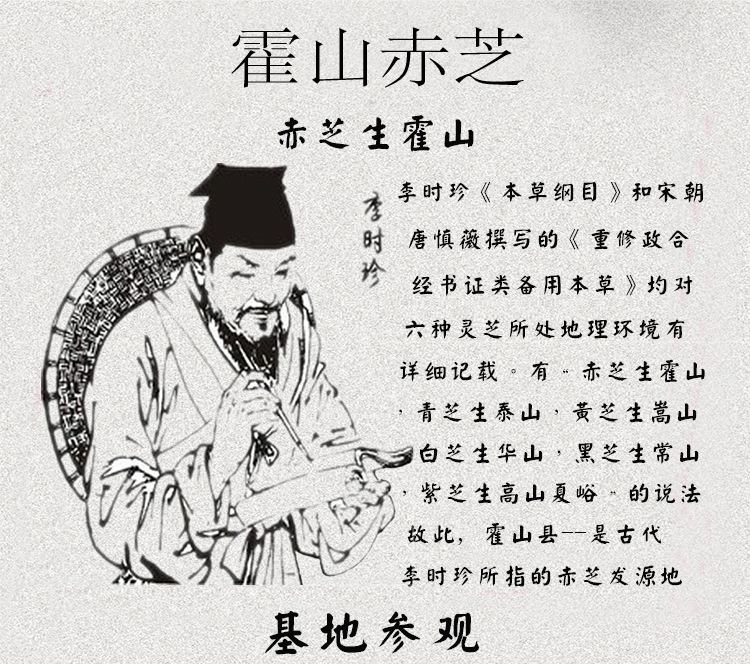 霍山赤芝
赤芝生霍山
李时珍
李时珍《本草纲目》和宋朝
唐慎薇撰写的《重修政合
经书证类备用本草》均对
六种灵芝所处地理环境有
详细记载。有“赤芝生霍山
，青芝生泰山，黄芝生嵩山
白芝生华山，黑芝生常山
，紫芝生高山夏峪”的说法
故此，霍山县--是古代
李时珍所指的赤芝发源地
基地参观